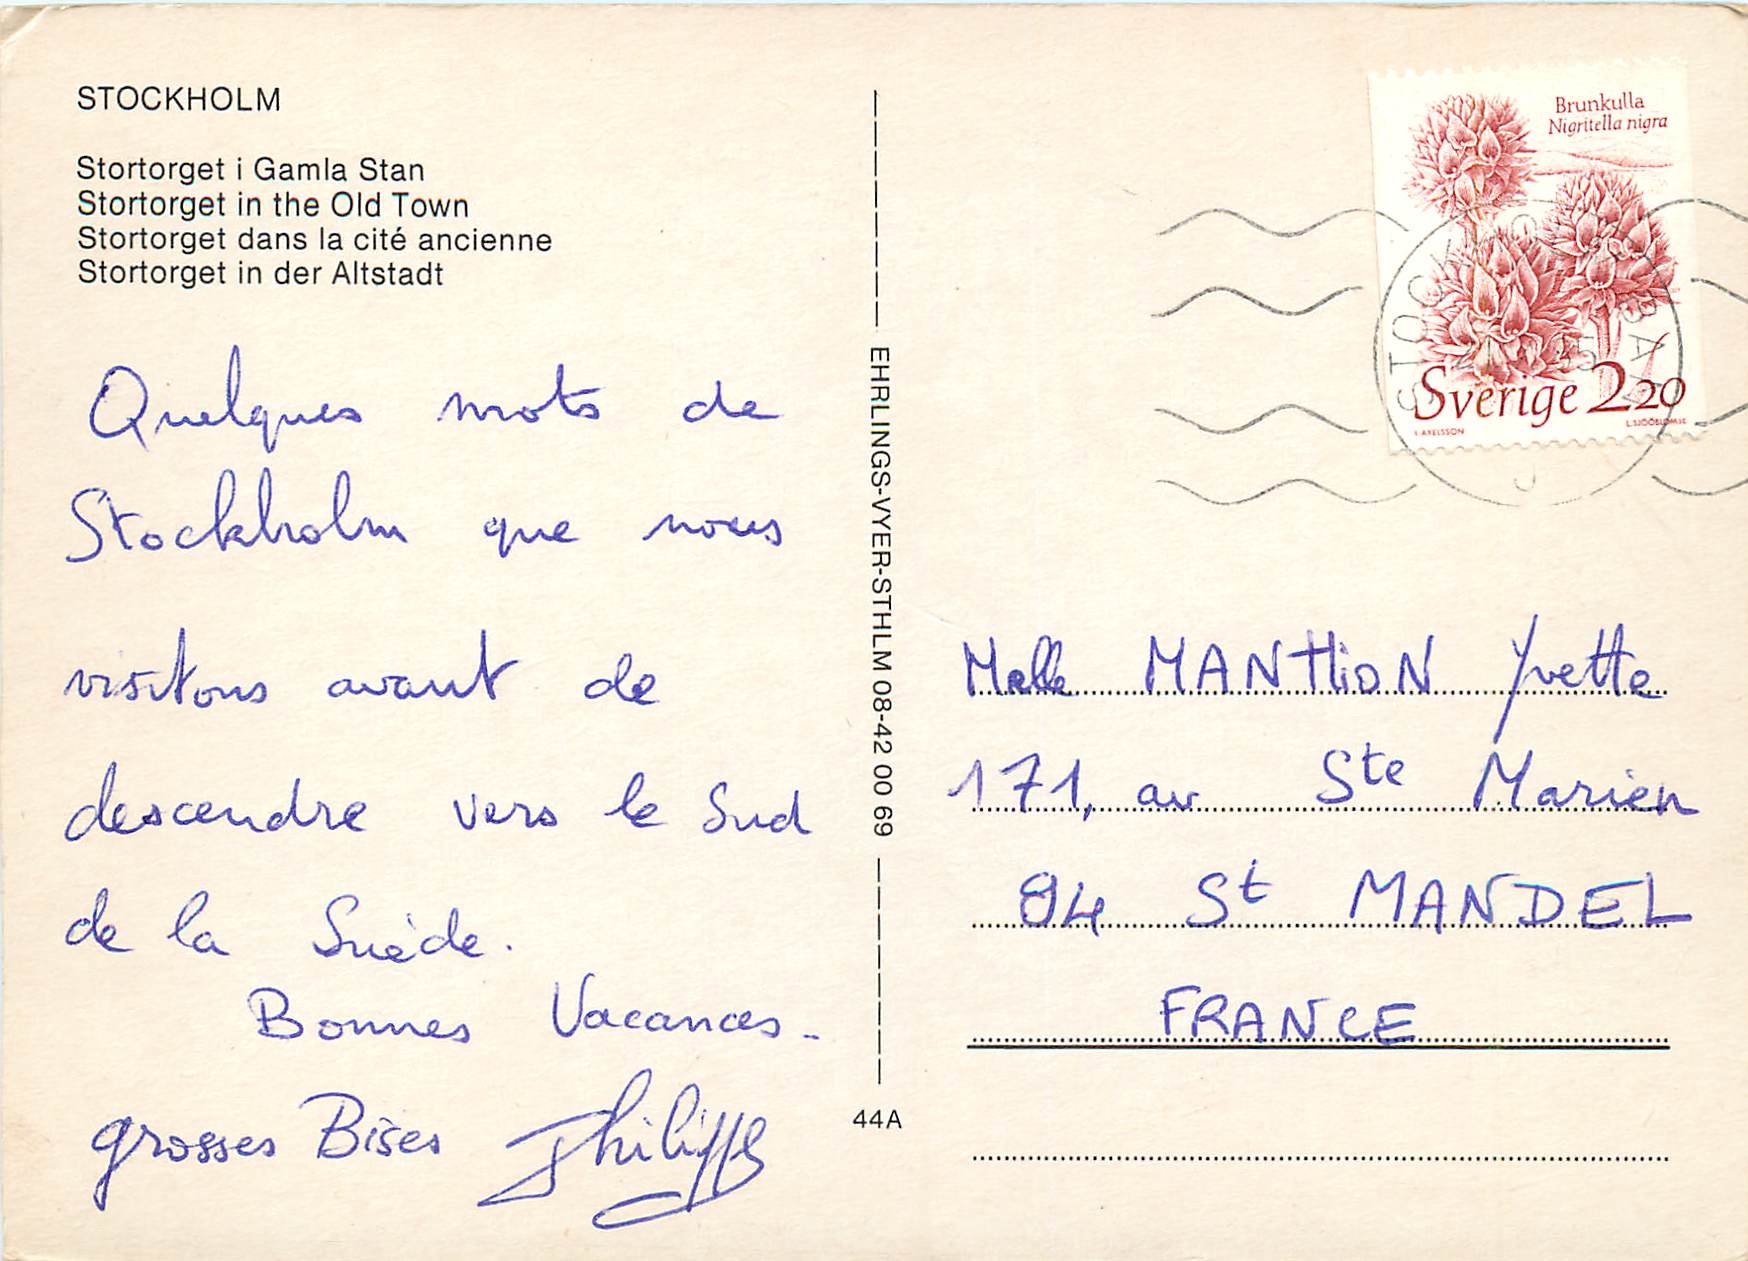 STOCKHOLM
Stortorget i Gamla Stan
Stortorget in the Old Town
Stortorget dans la cité ancienne
Stortorget in der Altstadt
Quelques mots de
Stockholm que nous
visitons avant de
descendre vers le Sud
de la Suède.
Bonnes Vacances -
grosses Bises Philippe
EHRLINGS-VYER-STHLM 08-42 00 69
44A
Brunkulla
Nigritella nigra
Sverige 2 20
I. AXELSSON
STOCKHOLM BAN
85
Melle MANTION Yvette
171, av Ste Marien
94 St MANDEL
FRANCE